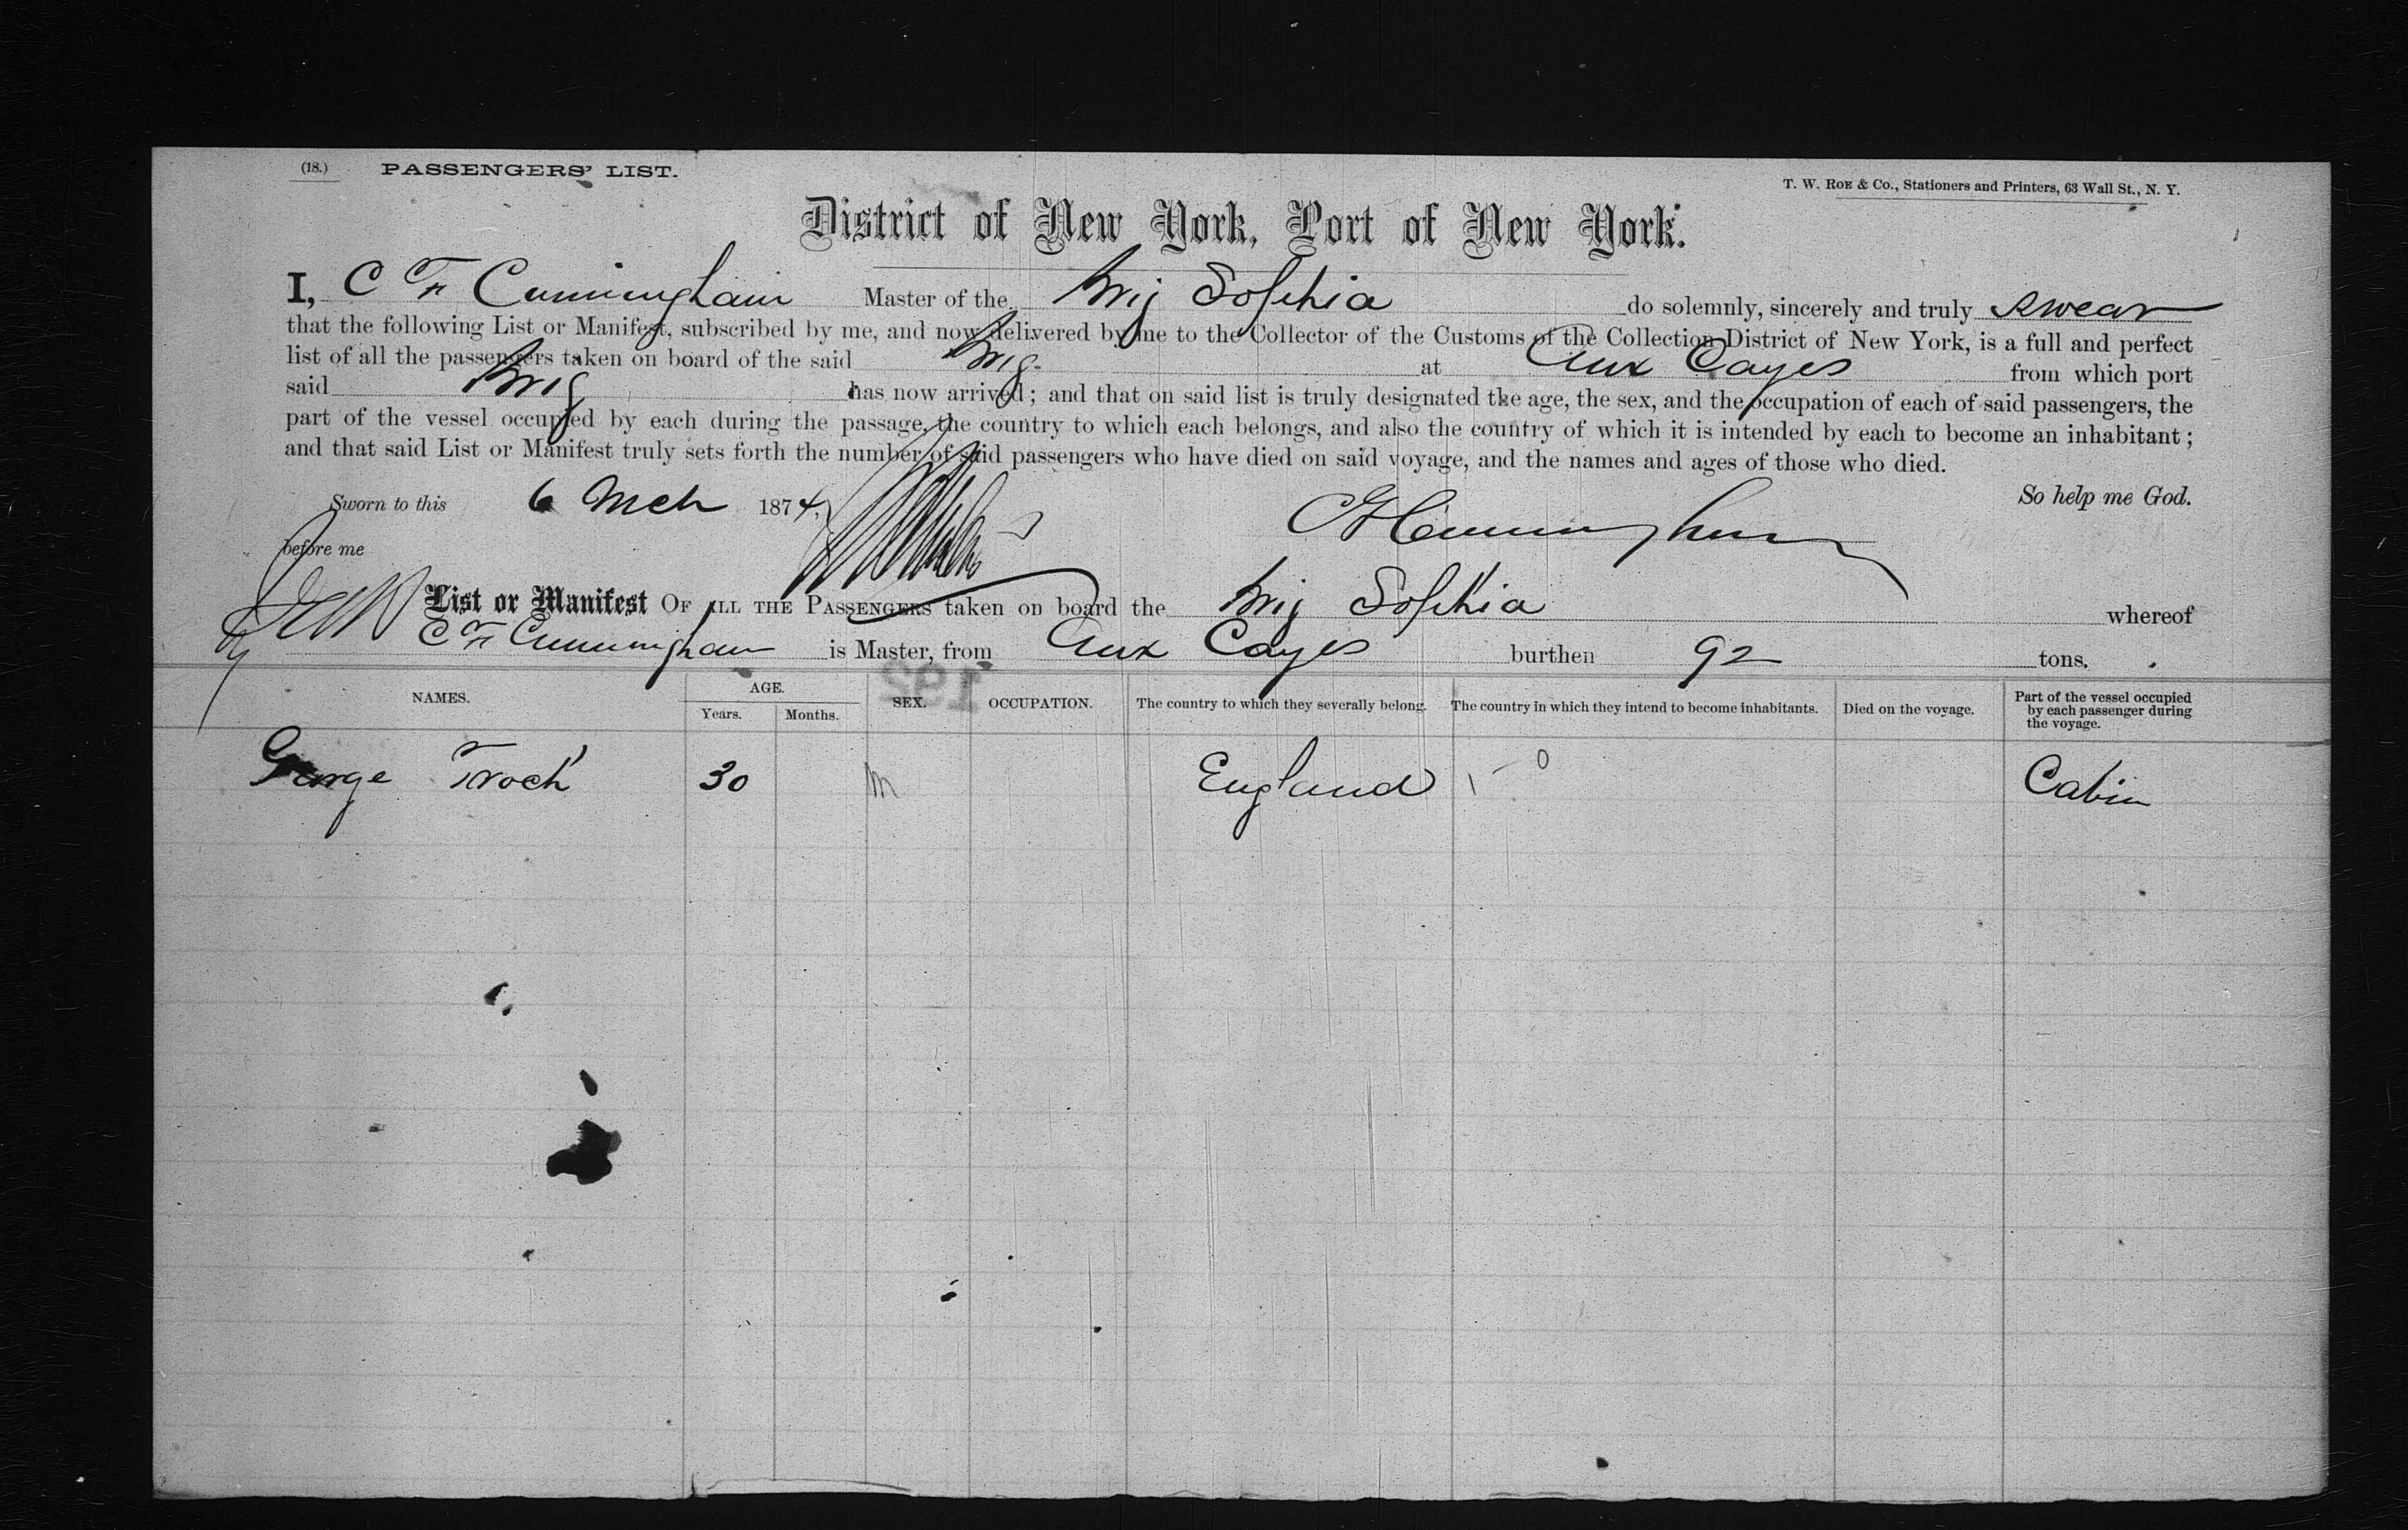 (18.) PASSENGERS' LIST.
T. W. ROE & Co., Stationers and Printers, 63 Wall St., N. Y.
District of New York, Port of New York.
I, C F Cunningham Master of the Brig Sophia do solemnly, sincerely and truly swear
that the following List or Manifest, subscribed by me, and now delivered by me to the Collector of the Customs of the Collection District of New York, is a full and perfect
list of all the passengers taken on board of the said Brig at Aux Cayes from which port
said Brig has now arrived; and that on said list is truly designated the age, the sex, and the occupation of each of said passengers, the
part of the vessel occupied by each during the passage, the country to which each belongs, and also the country of which it is intended by each to become an inhabitant;
and that said List or Manifest truly sets forth the number of said passengers who have died on said voyage, and the names and ages of those who died.
Sworn to this 6 Mch 1874, So help me God.
before me C F Cunningham
List or Manifest OF ALL THE PASSENGERS taken on board the Brig Sophia whereof
C F Cunningham is Master, from Aux Cayes burthen 92 tons.
NAMES. AGE. Years. Months. SEX. OCCUPATION. The country to which they severally belong. The country in which they intend to become inhabitants. Died on the voyage. Part of the vessel occupied by each passenger during the voyage.
George Troch 30 M England 1 - 0 Cabin